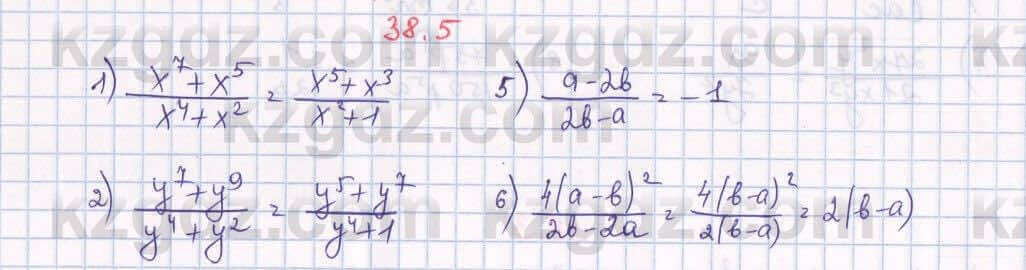 38.5
1) (x^7+x^5)/(x^4+x^2) = (x^5+x^3)/(x^2+1)
5) (a-2b)/(2b-a) = -1
2) (y^7+y^9)/(y^4+y^2) = (y^5+y^7)/(y^4+1)
6) 4(a-b)^2/(2b-2a) = 4(b-a)^2/(2(b-a)) = 2(b-a)
kzgdz.com kzgdz.com
kzgdz.com kzgdz.com